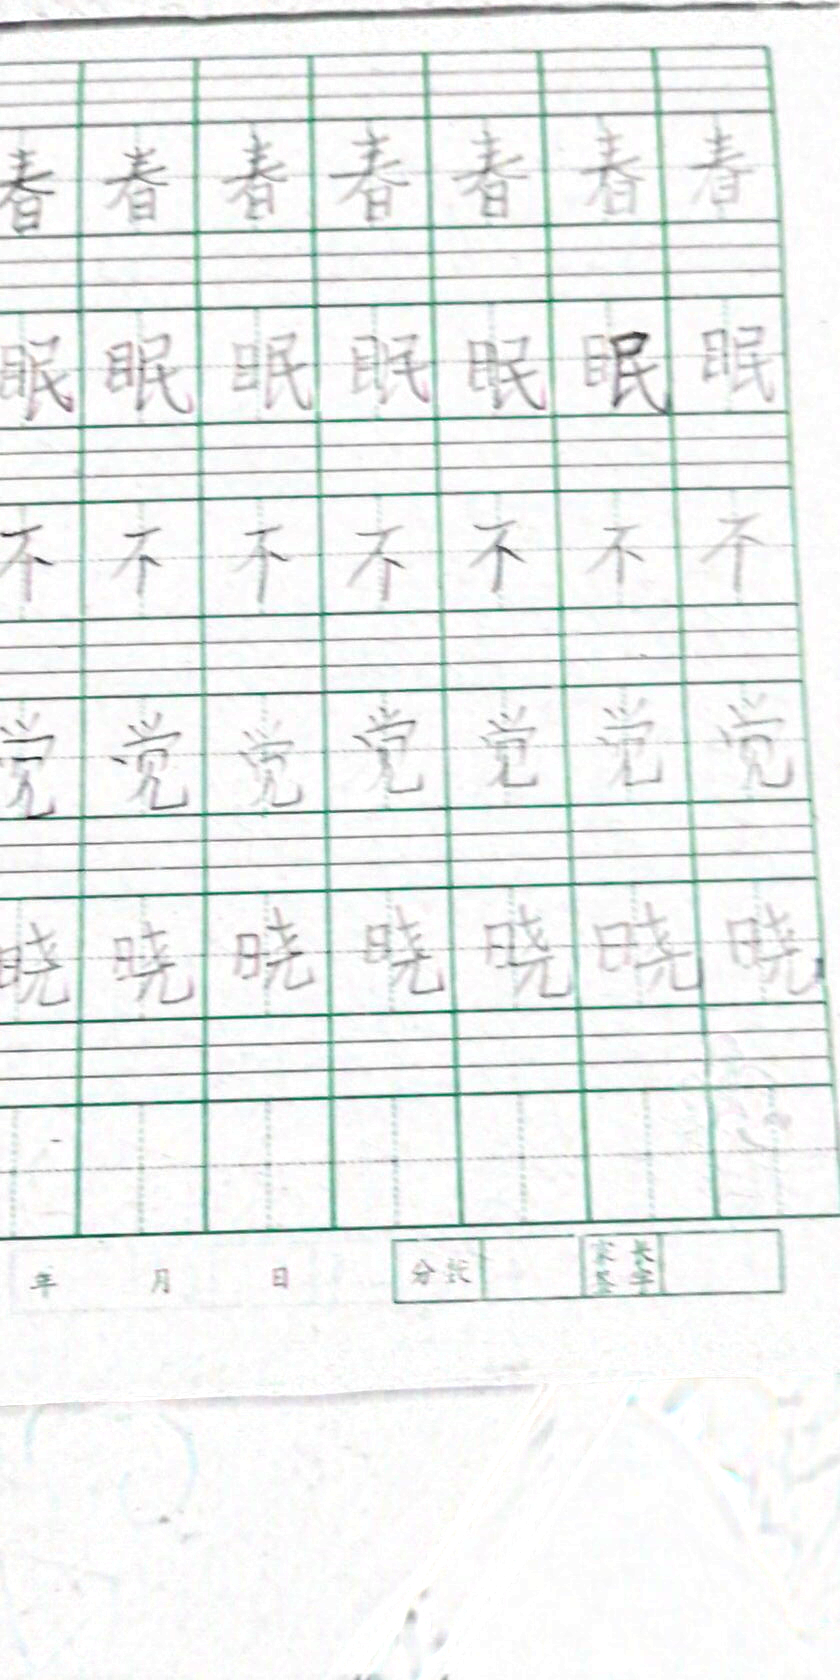 春春春春春春春
眠眠眠眠眠眠眠
不不不不不不不
觉觉觉觉觉觉觉
晓晓晓晓晓晓晓
年 月 日 分数 家长签字